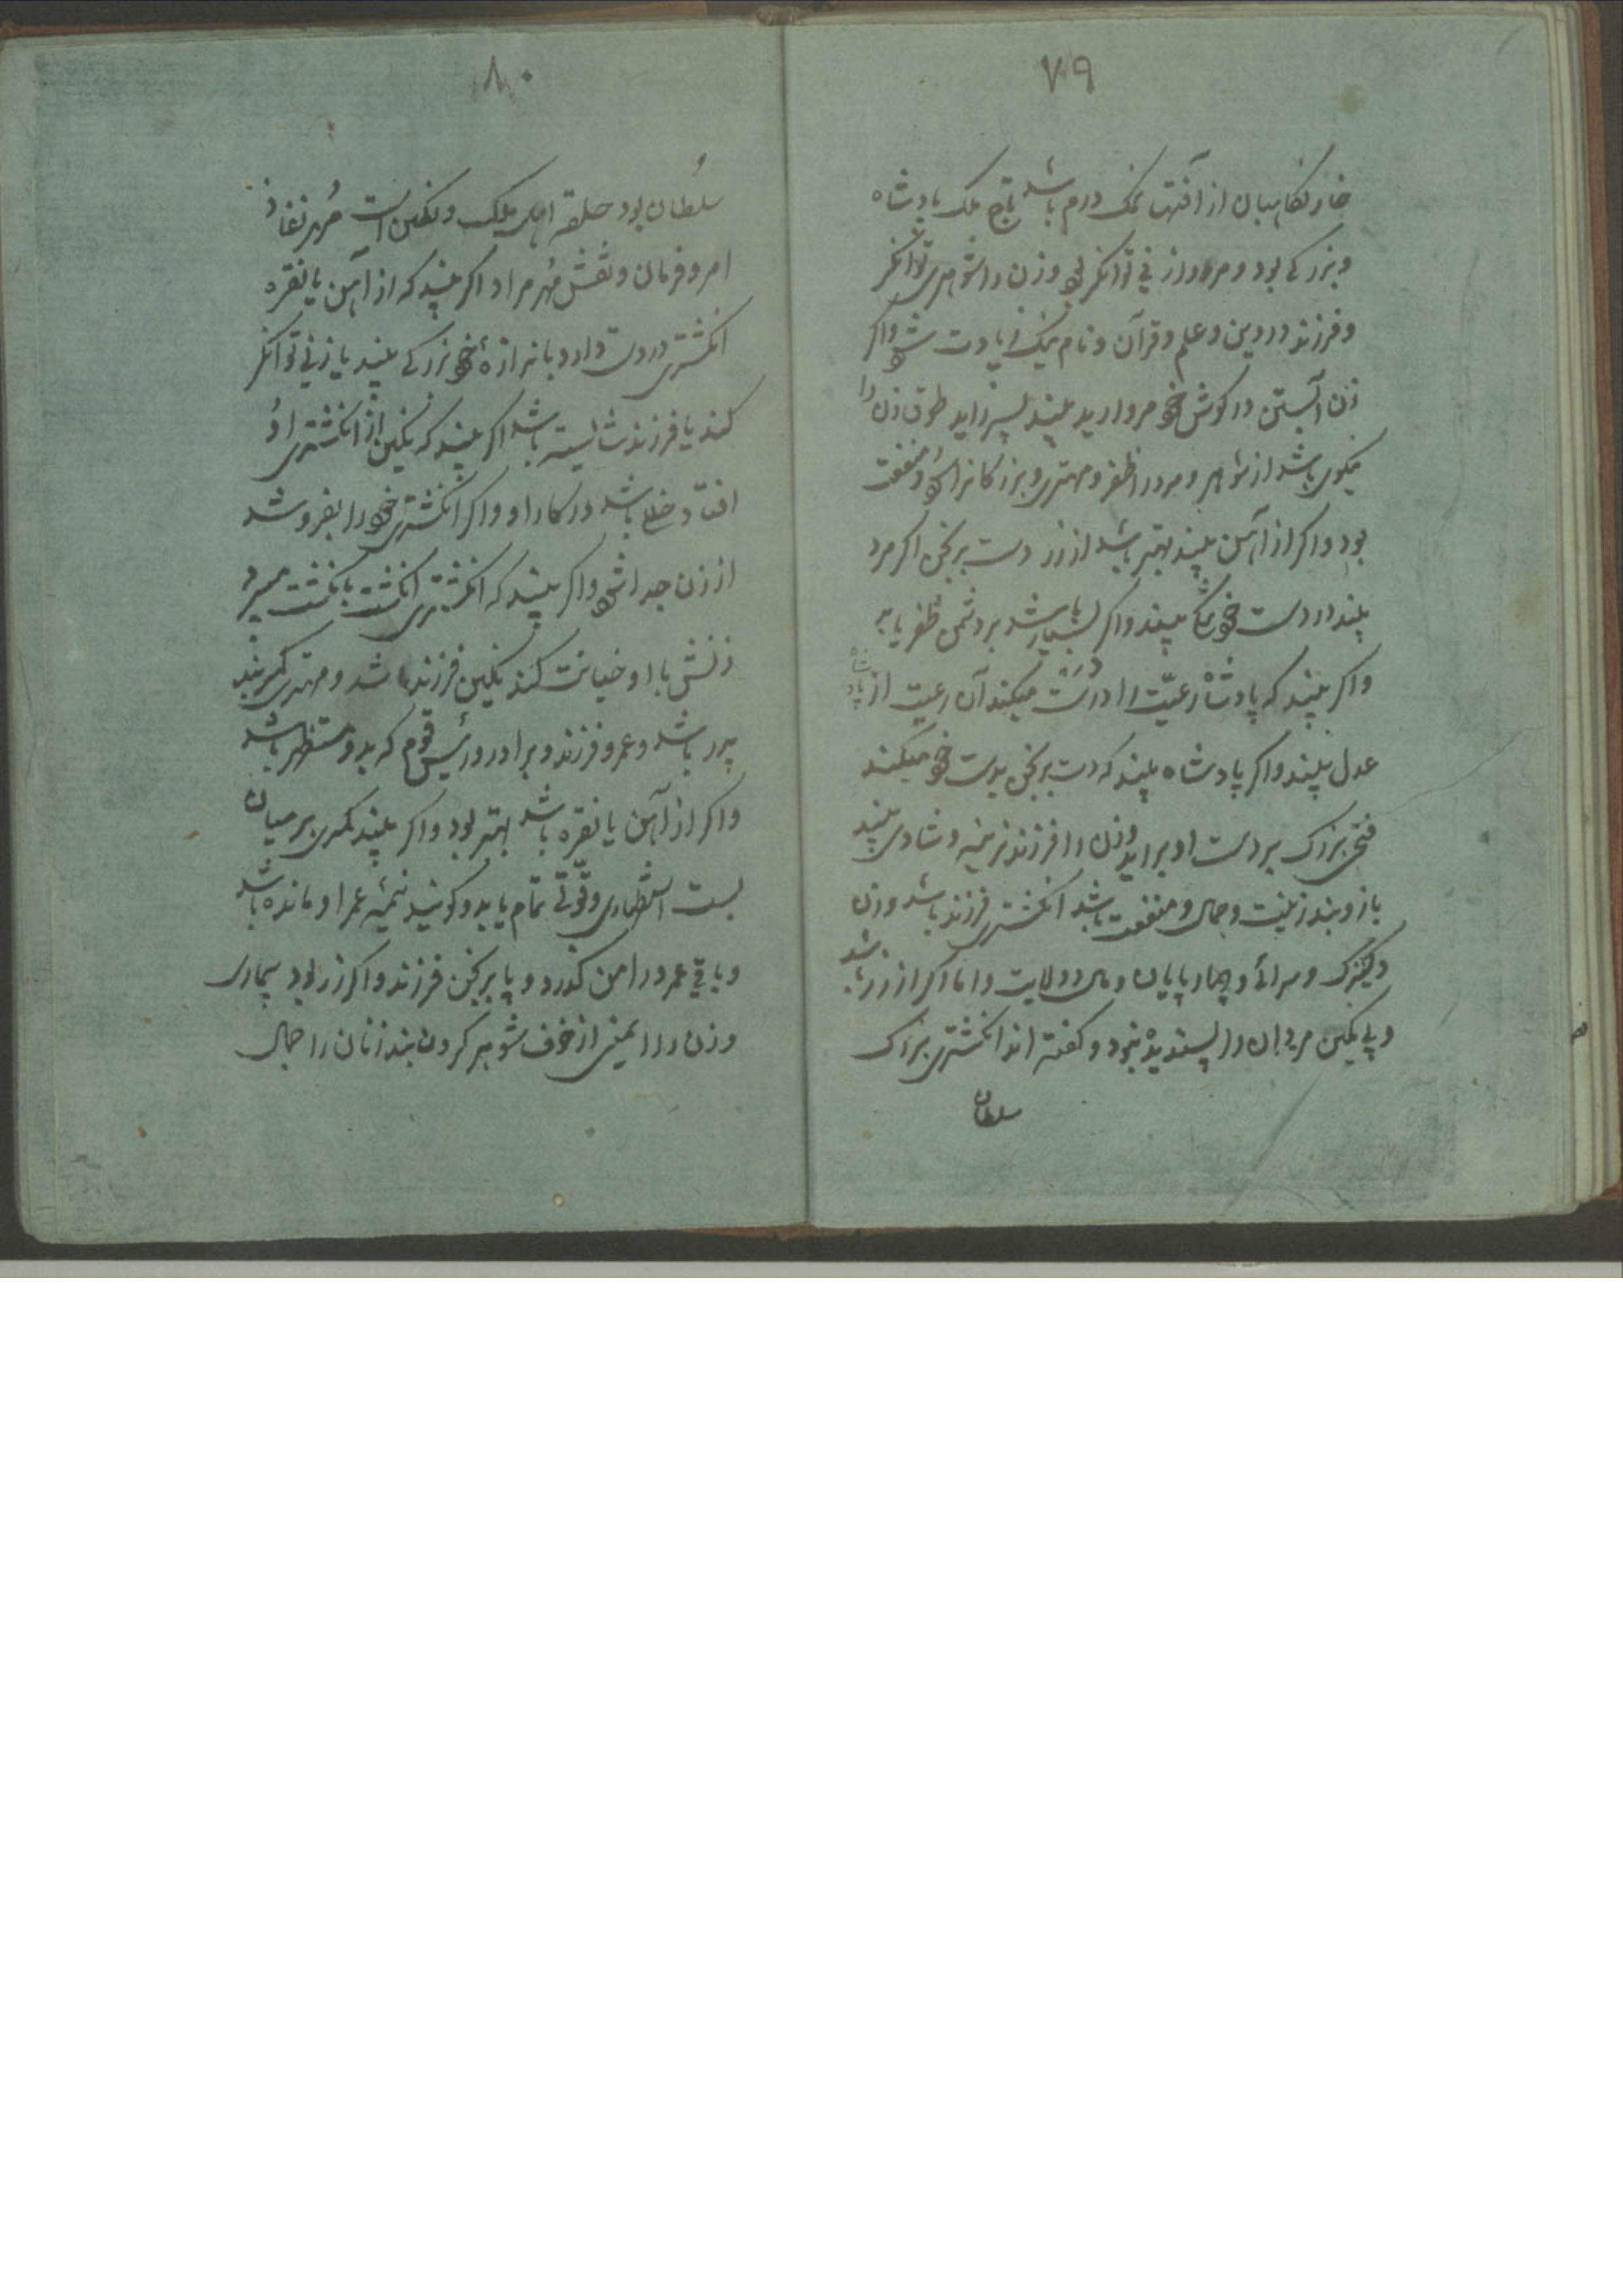 ۷۹
خانه نگاهبان از آفتها نمک درم باشد تاج ملک پادشاه
و بزرگی بود و مرد را زنی توانگر بود وزن را شوهری توانگر
و فرزند در دین و علم و قرآن و نام نیک زیادت شود واگر
زن آبستن در گوش خود مروارید بیند پسر زاید طوق زن را
نیکوی باشد از شوهر و مرد را ظفر و مهتری و بزرگان را و منفعت
بود واگر از آهن بیند بهتر باشد از زر دست برنجن اگر مرد
بیند در دست خود بیند واگر بسیار باشد بر دشمن ظفر یابد
واگر بیند که پادشاه رعیّت را در دست میکند آن رعیت از پادشاه
عدل بیند واگر پادشاه بیند که دست برنجن بدست خود میکند
فتحی بزرگ بر دست او براید وزن را فرزند نرینه و شادی بیند
بازوبند زینت و جمال و منفعت باشد انگشتری فرزند باشد وزن
و کنیزک و سرائے و چهارپایان و مال و ولایت و اما اگر از زر باشد
و بی نگین مردان را پسندیده نبود و گفته اند انگشتری بزرگ
سلطان
۸۰
سلطان بود حلقه اصل ملک و نگین است مُهر نفاذ
امر و فرمان و نقش مُهر مراد اگر بیند که از آهن یا نقره
انگشتری در دست دارد باندازهٔ خود بزرگی بیند یا زنی توانگر
کند یا فرزند شایسته باشد اگر بیند که نگین از انگشتری او
افتاد خلل باشد در کار او واگر انگشتری خود را بفروشد
از زن جدا شود واگر بیند که انگشتری انگشت بانگشت میبرد
زنش با او خیانت کند نگین فرزند باشد و مهتری کمربند
پدر باشد و عمر و فرزند و برادر و رئیس قوم که بدو مستظهر باشد
واگر از آهن یا نقره باشد بهتر بود واگر بیند کمری بر میان
بست استظهاری و قوّتی تمام یابد و گویند نیمهٔ عمر او مانده باشد
و باقی عمر در امن گذرد و پا برنجن فرزند واگر زر بود بیماری
وزن را ایمنی از خوف شوهر گردن بند زنان را جمال